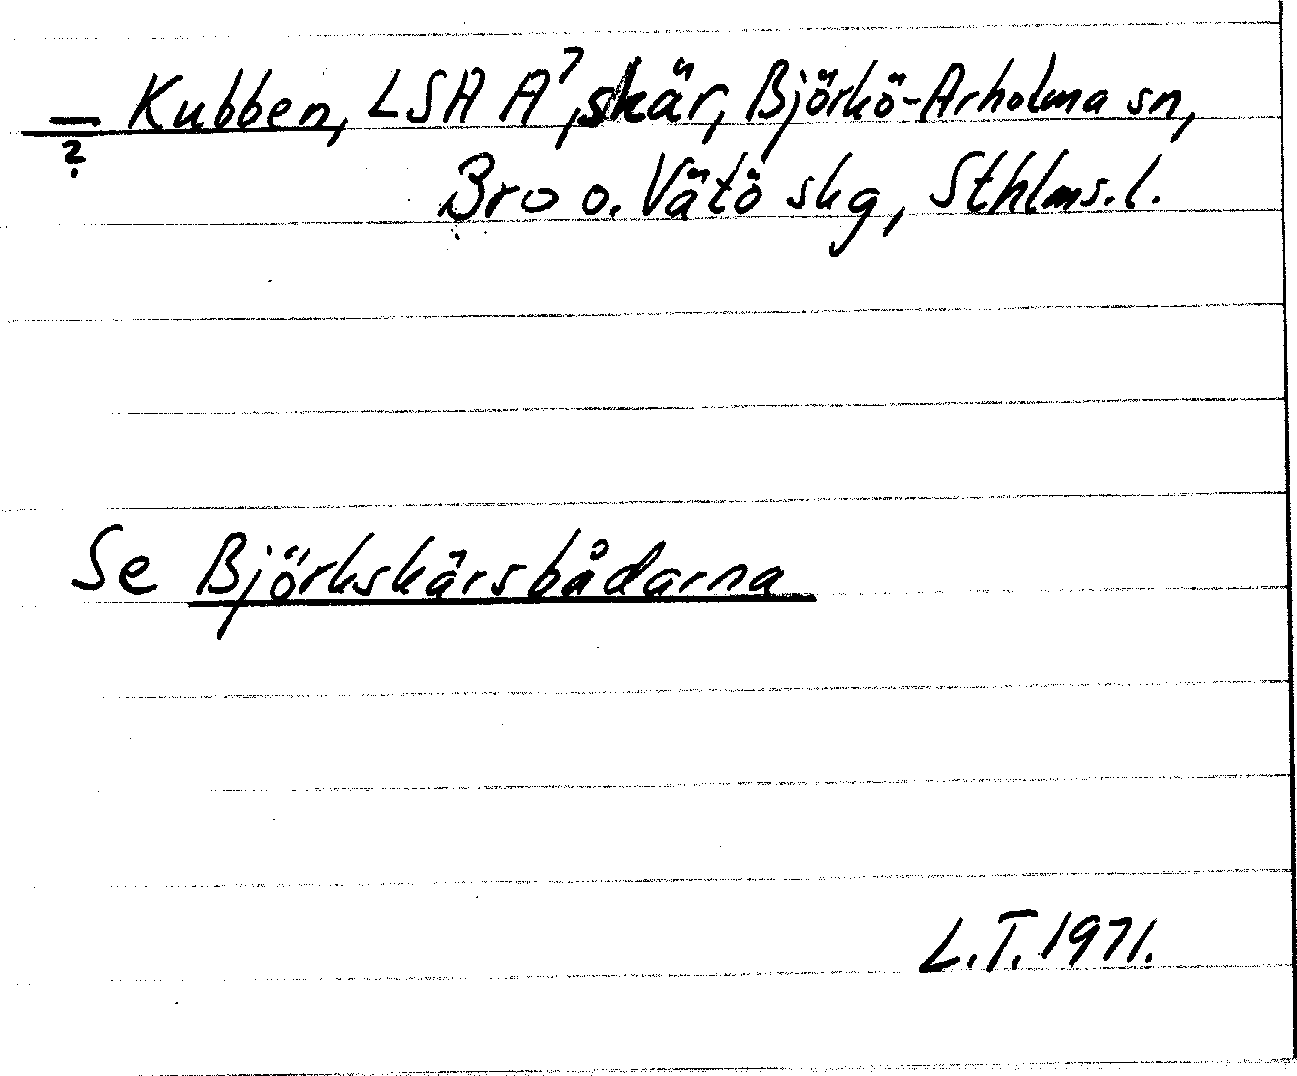 — Kubben, LSA A⁷, skär, Björkö-Arholma sn,
?
Bro o. Vätö skg, Sthlms. l.
Se Björkskärsbådarna
L.T. 1971.